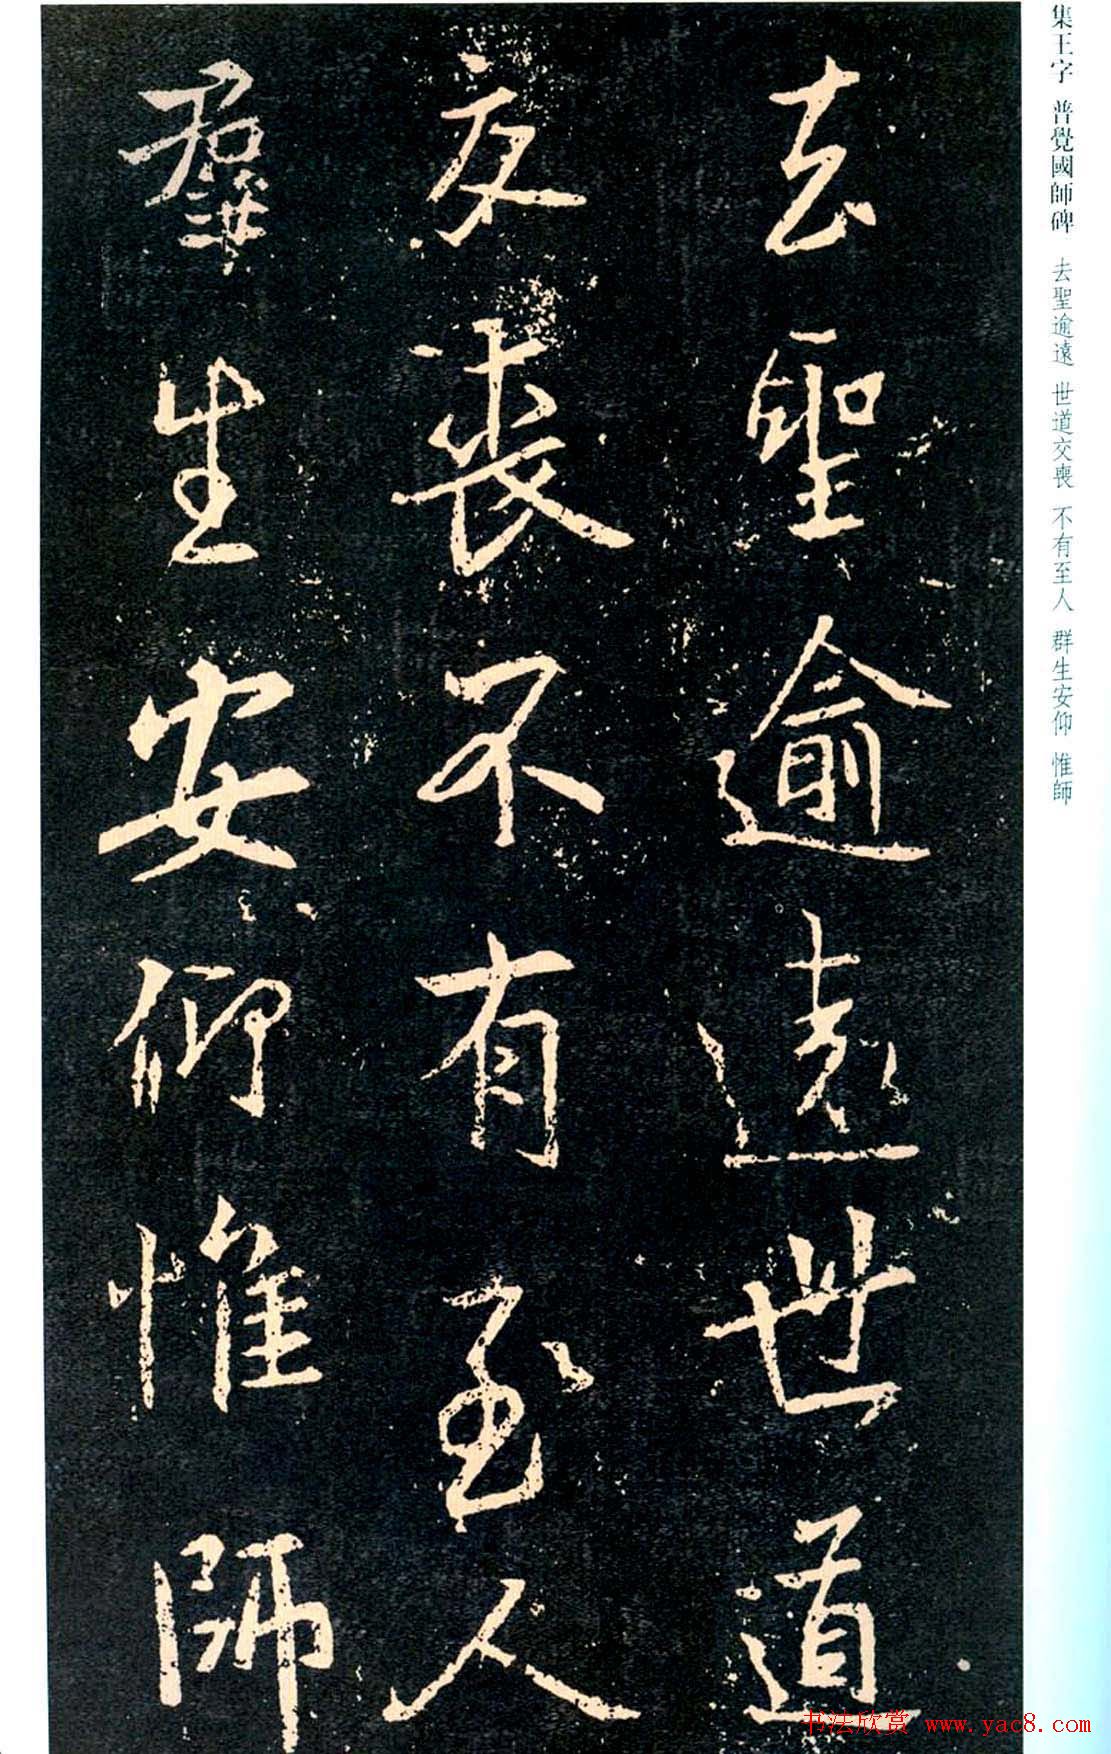 集王字 普覺國師碑 去聖逾遠 世道交喪 不有至人 群生安仰 惟師
去聖逾遠世道
交喪不有至人
群生安仰惟師
书法欣赏 www.yac8.com